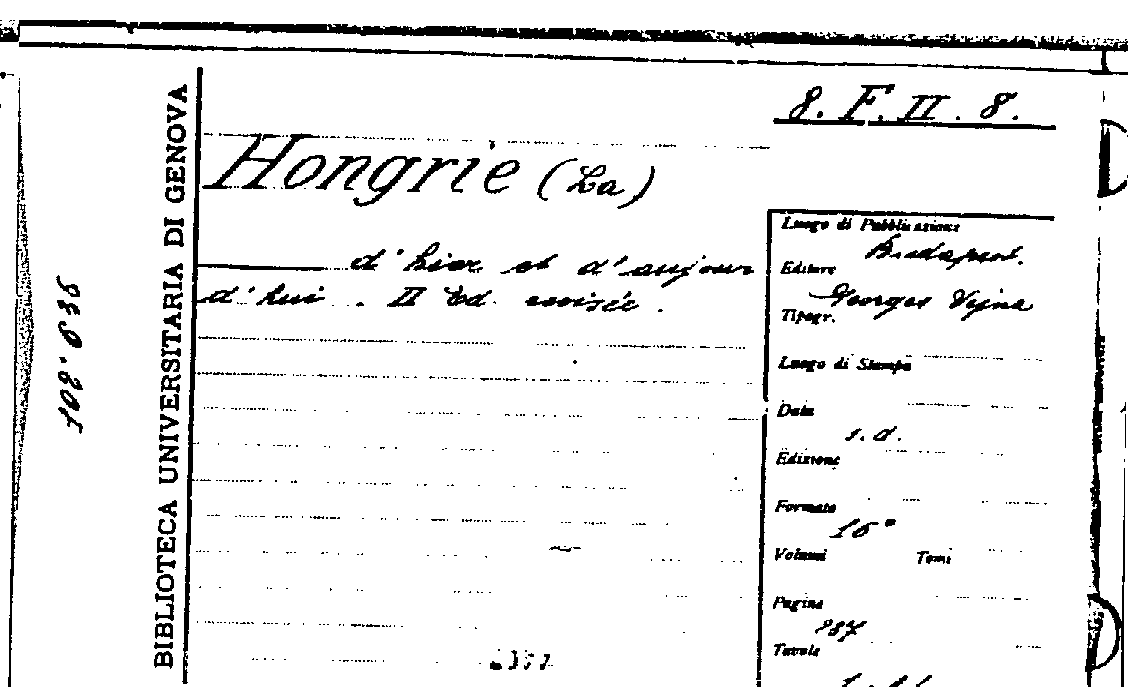 8. F. II. 8.
BIBLIOTECA UNIVERSITARIA DI GENOVA
Hongrie (La)
d'hier et d'aujour
d'hui. II Ed. revisée.
Luogo di Pubblicazione
Budapest.
Editore
Georges Vajna
Tipogr.
Luogo di Stampa
Data
s. d.
Edizione
Formato
16°
Volumi Tomi
Pagine
287
Tavole